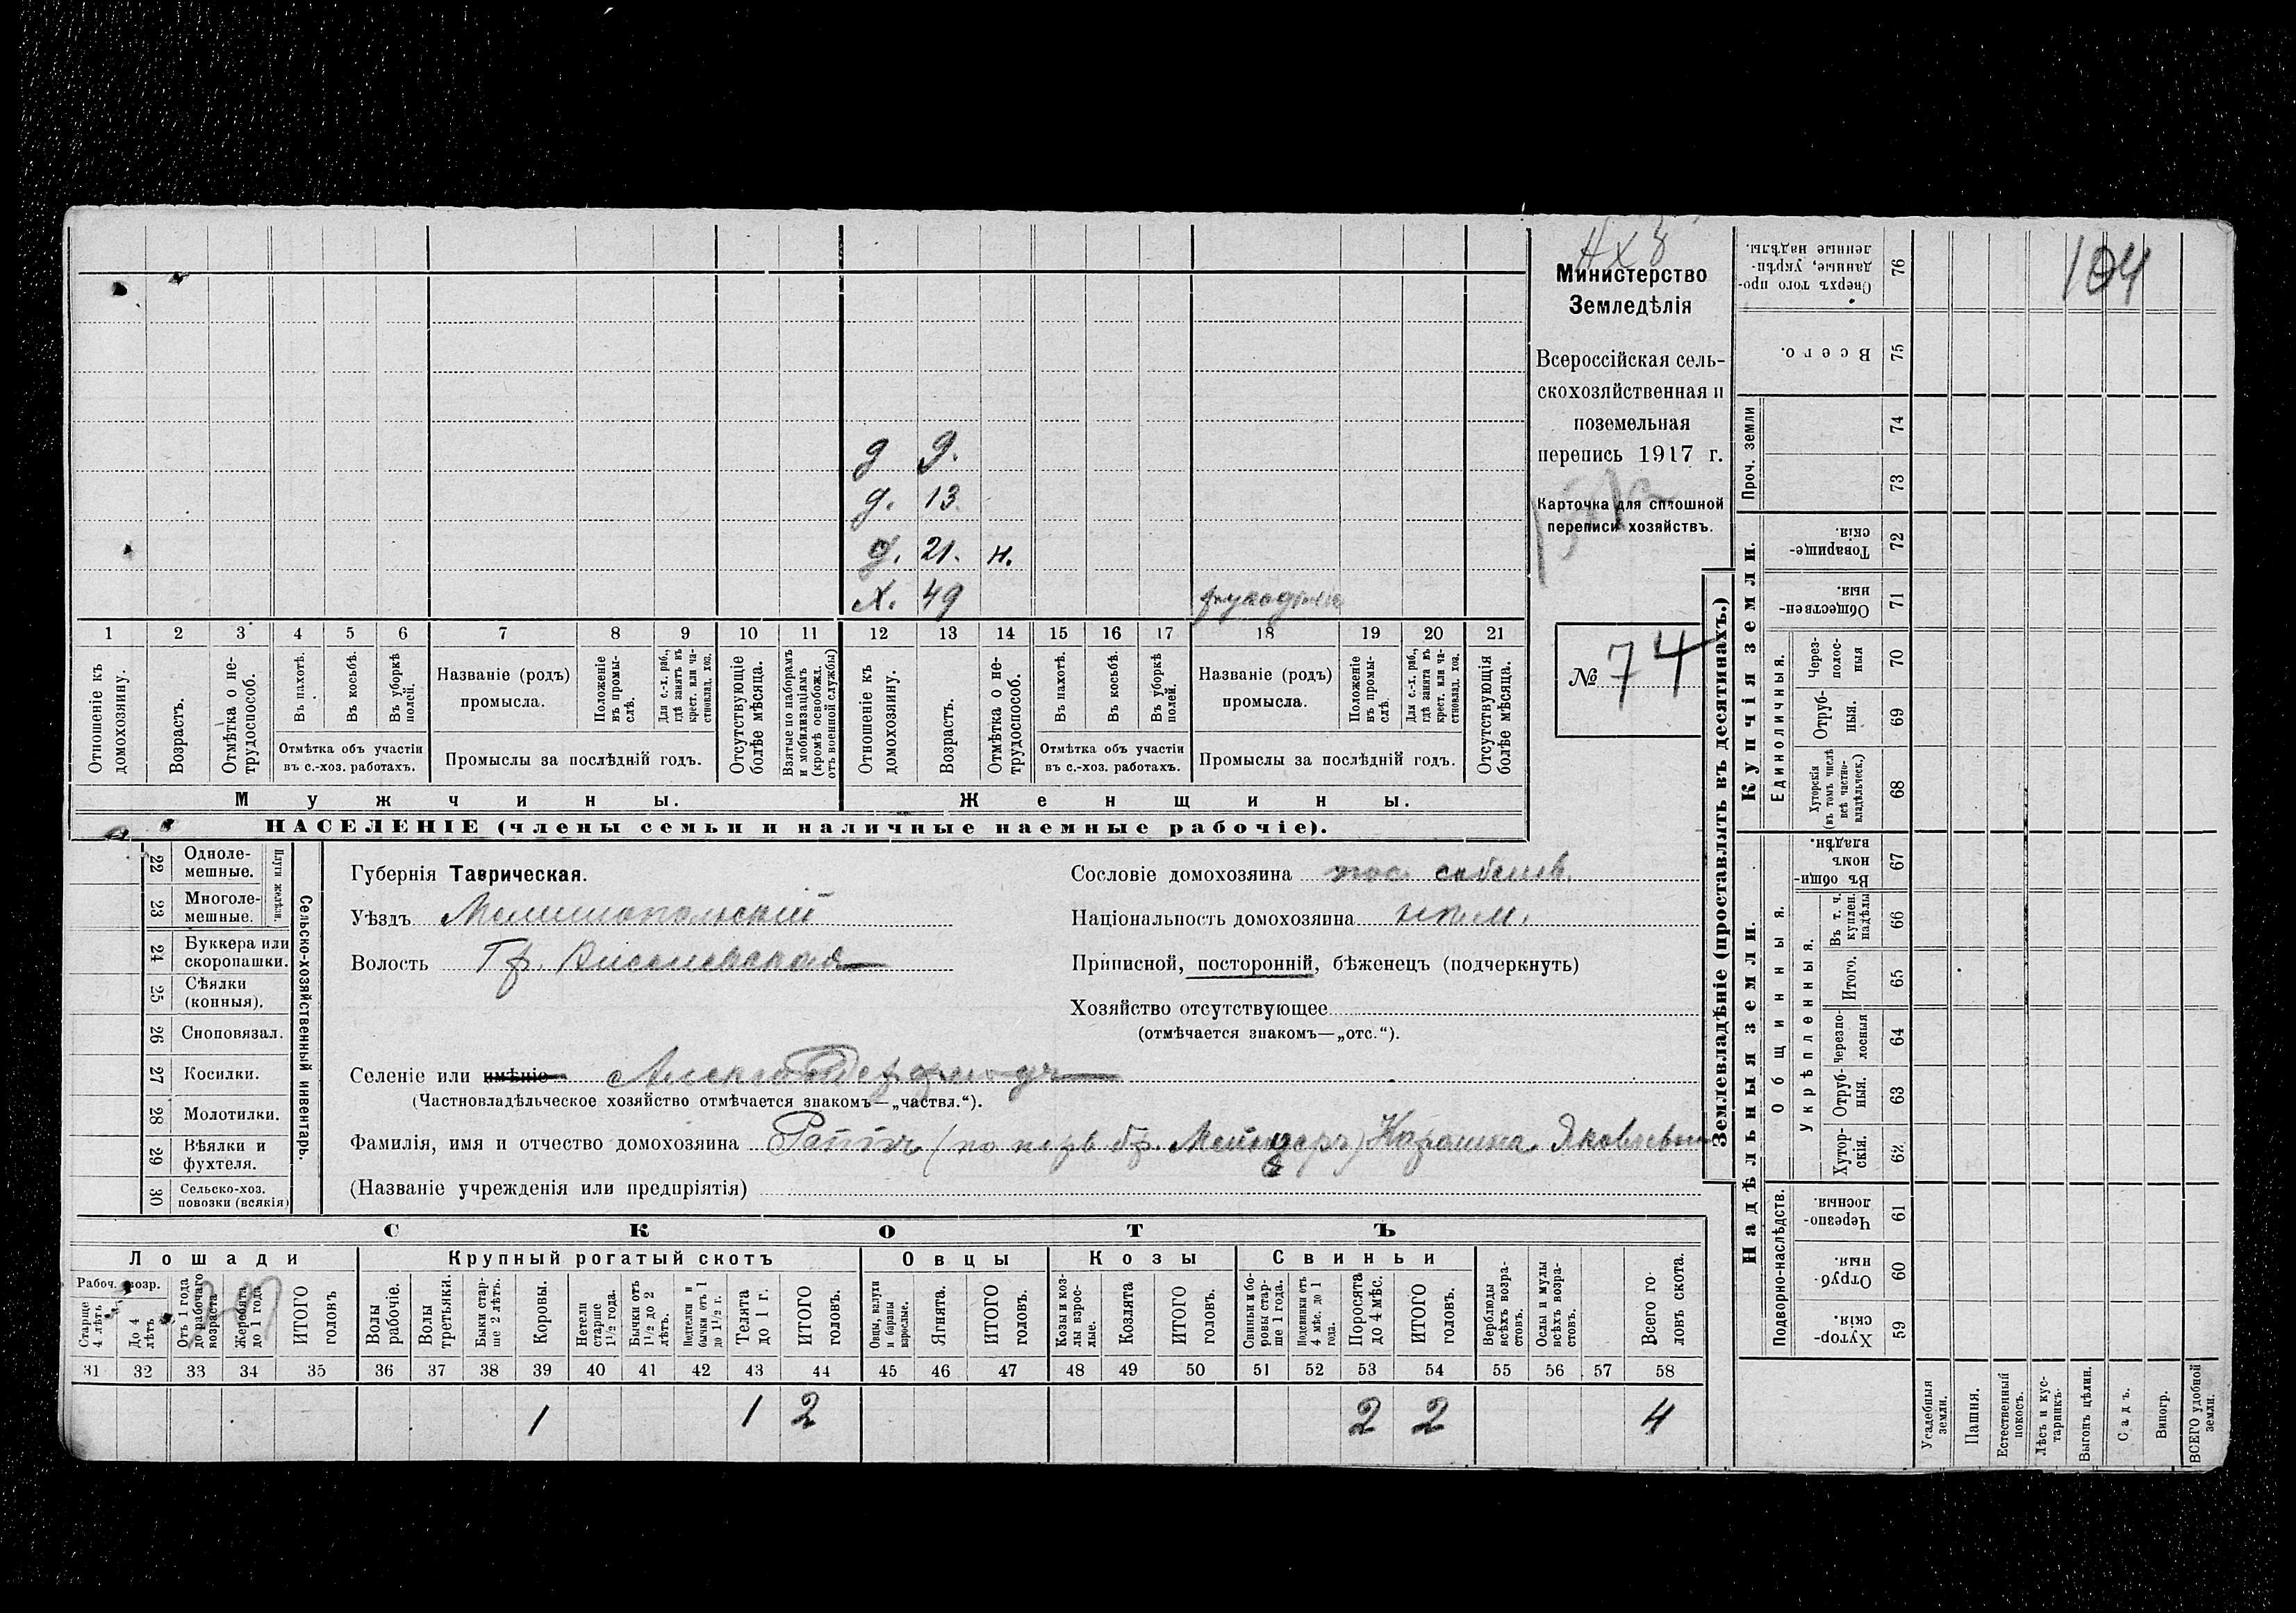 НХЗ
104
Министерство
Земледѣлія
Всероссійская сель-
скохозяйственная и
поземельная
перепись 1917 г.
Карточка для сплошной
переписи хозяйствъ.
№ 74
д 9.
д. 13.
д. 21. н.
Х. 49
1 2 3 4 5 6 7 8 9 10 11 12 13 14 15 16 17 18 19 20 21
Отношеніе къ домохозяину.
Возрастъ.
Отмѣтка о не-трудоспособ.
Въ пахотѣ.
Въ косьбѣ.
Въ уборкѣ полей.
Отмѣтка объ участіи
въ с.-хоз. работахъ.
Названіе (родъ)
промысла.
Положеніе въ промы-слѣ.
Для с.-х. раб., гдѣ занятъ въ крест. или ча-стновлад. хоз.
Промыслы за послѣдній годъ.
Отсутствующіе болѣе мѣсяца.
Взятые по наборамъ и мобилизаціямъ (кромѣ освобожд. отъ военной службы)
Отношеніе къ домохозяину.
Возрастъ.
Отмѣтка о не-трудоспособ.
Въ пахотѣ.
Въ косьбѣ.
Въ уборкѣ полей.
Отмѣтка объ участіи
въ с.-хоз. работахъ.
Названіе (родъ)
промысла.
Положеніе въ промы-слѣ.
Для с.-х. раб., гдѣ занята въ крест. или ча-стновлад. хоз.
Промыслы за послѣдній годъ.
Отсутствующія болѣе мѣсяца.
Мужчины. Женщины.
НАСЕЛЕНІЕ (члены семьи и наличные наемные рабочіе).
Сельско-хозяйственный инвентарь.
Плуги желѣзн.
22 Однолемешные.
23 Многолемешные.
24 Буккера или скоропашки.
25 Сѣялки (конныя).
26 Сноповязал.
27 Косилки.
28 Молотилки.
29 Вѣялки и фухтеля.
30 Сельско-хоз. повозки (всякія)
Губернія Таврическая.
Уѣздъ Мелитопольскій
Волость
Селеніе или имѣніе
(Частновладѣльческое хозяйство отмѣчается знакомъ—„частвл.“).
Сословіе домохозяина пос. собств.
Національность домохозяина нѣм.
Приписной, посторонній, бѣженецъ (подчеркнуть)
Хозяйство отсутствующее
(отмѣчается знакомъ—„отс.“).
Фамилія, имя и отчество домохозяина Яковлевна
(Названіе учрежденія или предпріятія)
СКОТЪ
Лошади Крупный рогатый скотъ Овцы Козы Свиньи
Рабоч. возр.
Старше 4 лѣтъ
До 4 лѣтъ.
Отъ 1 года до рабочаго возраста
Жеребята до 1 года
ИТОГО головъ
Волы рабочіе.
Волы третьяки.
Быки стар-ше 2 лѣтъ.
Коровы.
Нетели старше 1½ года.
Бычки отъ 1½ до 2 лѣтъ.
бычки отъ 1 до 1½ г.
Телята до 1 г.
ИТОГО головъ.
Овцы, валухи и бараны взрослые.
Ягнята.
ИТОГО головъ.
Козы и коз-лы взрос-лые.
Козлята
ИТОГО головъ.
Свиньи и бо-ровы стар-ше 1 года.
Подсвинки отъ 4 мѣс. до 1 года.
Поросята до 4 мѣс.
ИТОГО головъ.
Верблюды всѣхъ возра-стовъ.
Ослы и мулы всѣхъ возра-стовъ.
Всего го-ловъ скота.
31 32 33 34 35 36 37 38 39 40 41 42 43 44 45 46 47 48 49 50 51 52 53 54 55 56 57 58
1 1 2 2 2 4
Землевладѣніе (проставлять въ десятинахъ.)
Купчія земли.
Надѣльныя земли.
76 Сверхъ того про-данные, укрѣп-ленные надѣлы.
75 Всего.
Проч. земли
74
73
72 Товарище-скія.
71 Обществен-ныя
Единоличныя.
70 Через-полос-ныя
69 Отруб-ныя.
68 Хуторскія (въ томъ числѣ всѣ частно-владѣльческ.)
Общинныя.
67 Въ общи-номъ владѣн.
Укрѣпленныя.
66 Въ т. ч. куплен. надѣлы
65 Итого.
64 Черезпо-лосныя
63 Отруб-ныя.
62 Хутор-скія.
Подворно-наслѣдств.
61 Черезпо-лосныя.
60 Отруб-ныя.
59 Хутор-скія.
Усадебныя земли.
Пашня.
Естественный покосъ.
Лѣсъ и кус-тарникъ.
Выгонъ цѣлин.
Садъ.
Виногр.
ВСЕГО удобной земли.